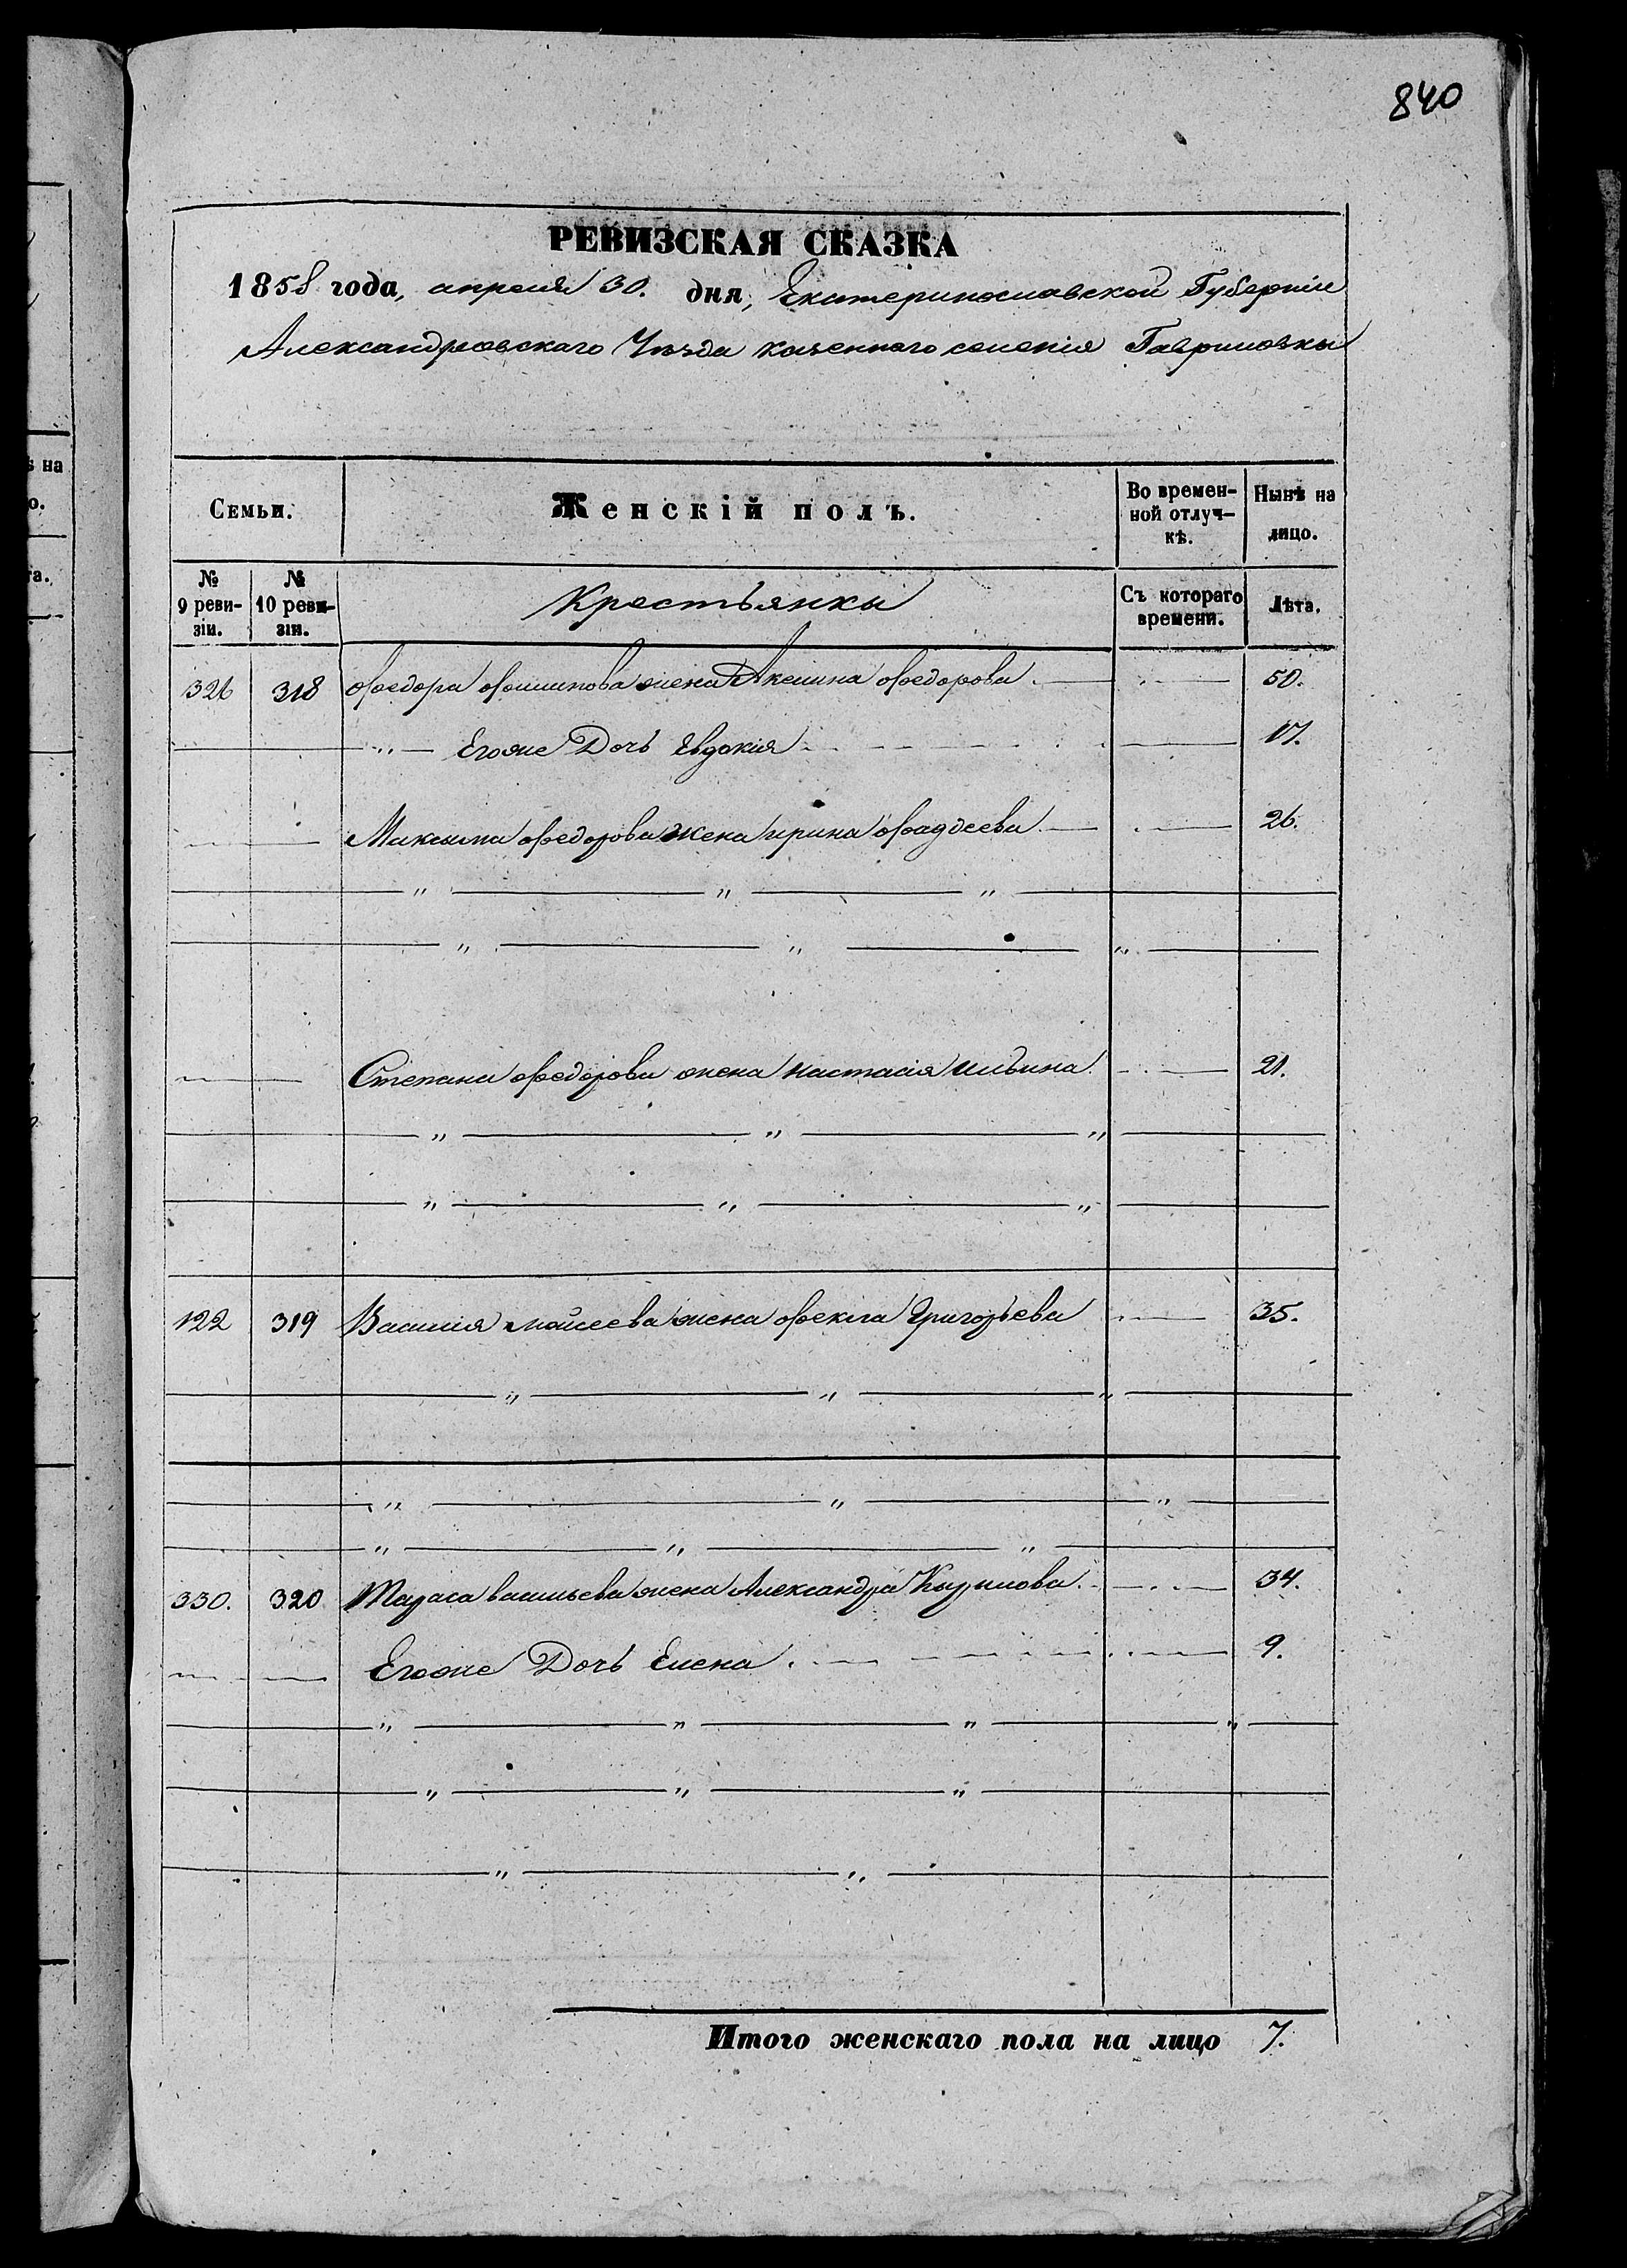 840
РЕВИЗСКАЯ СКАЗКА
1858 года, апреля 30. дня, Екатеринославской Губерніи
Александровскаго Уѣзда казенного селенія Гавриловки
Семьи. Женскій полъ. Во времен- Нынѣ на
ной отлуч- лицо.
кѣ.
№ 9 реви-зіи. № 10 реви-зіи. Крестьянки Съ котораго времени. Лѣта.
326 318 Федора Филипова жена Акелина Федорова 50.
Егоже Дочь Евдокія 17.
Максима Федорова жена ирина Фаддеева 26.
Степана Федорова жена настасія ильина 21.
122 319 Василія моисеева жена Фекла Григорьева 35.
330. 320 Тараса васильева жена Александра Кирилова 34.
Егоже Дочь Елена 9.
Итого женскаго пола на лицо 7.
на
о.
та.